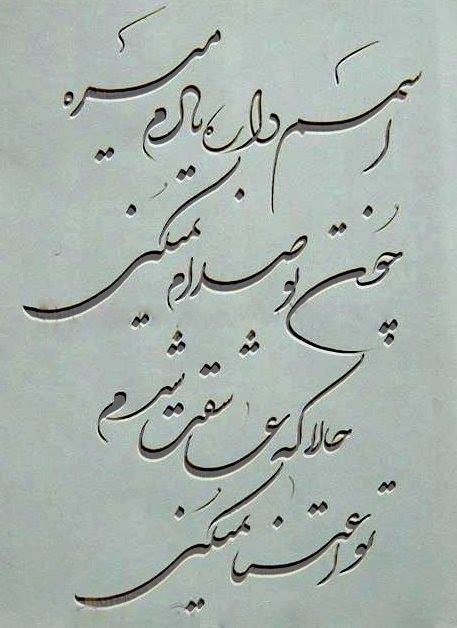 اسمم داره یادم میره
چون تو صدام نمیکنی
حالا که عاشقت شدم
تو اعتنا نمیکنی